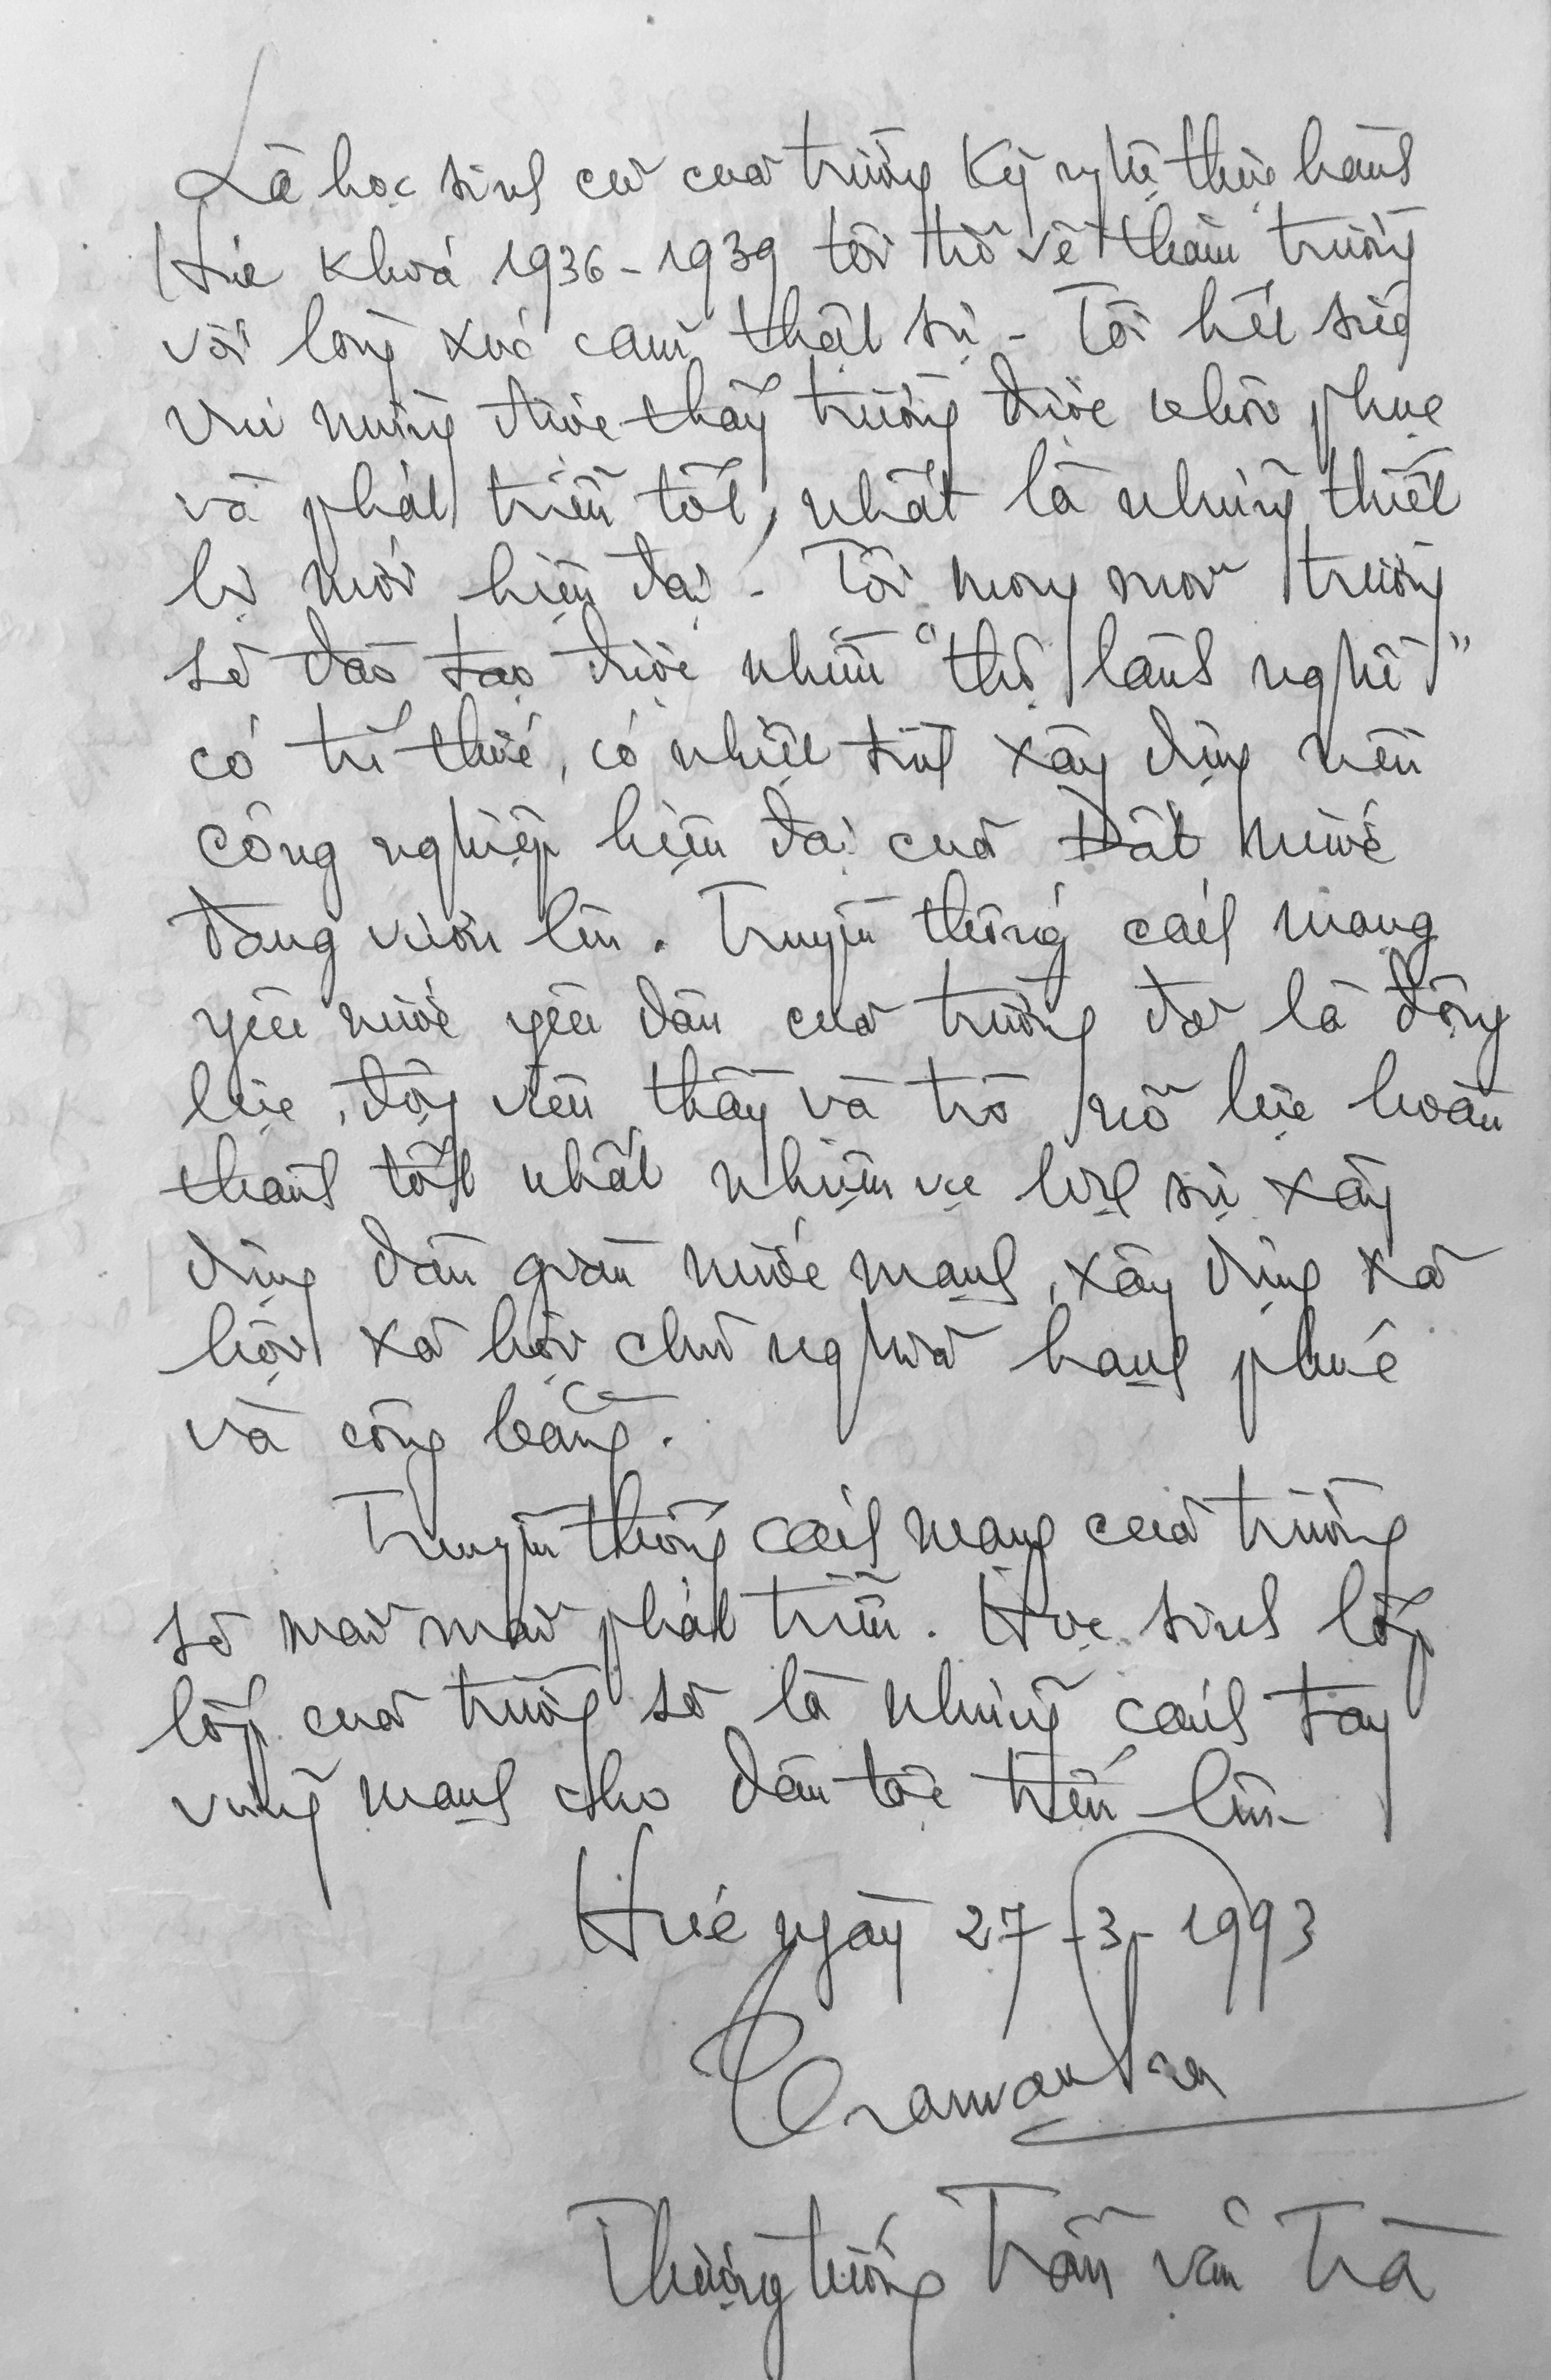 Là học sinh cũ của trường Kỹ nghệ thực hành
Huế khoá 1936-1939 tôi trở về thăm trường
với lòng xúc cảm thật sự - Tôi hết sức
vui mừng được thấy trường được khôi phục
và phát triển tốt, nhất là những thiết
bị mới hiện đại - Tôi mong mỏi trường
sẽ đào tạo được nhiều "thợ lành nghề"
có trí thức, có nhiệt tình xây dựng nền
công nghiệp hiện đại của Đất nước
đang vươn lên. Truyền thống cách mạng
yêu nước yêu dân của trường đã là động
lực, động viên thầy và trò nỗ lực hoàn
thành tốt nhất nhiệm vụ lịch sử xây
dựng dân giàu nước mạnh, xây dựng xã
hội xã hội chủ nghĩa hạnh phúc
và công bằng.
Truyền thống cách mạng của trường
sẽ mãi mãi phát triển. Học sinh lớp
lớp của trường sẽ là những cánh tay
vững mạnh cho dân tộc tiến lên -
Huế ngày 27-3-1993
Tranvantra
Thượng tướng Trần văn Trà